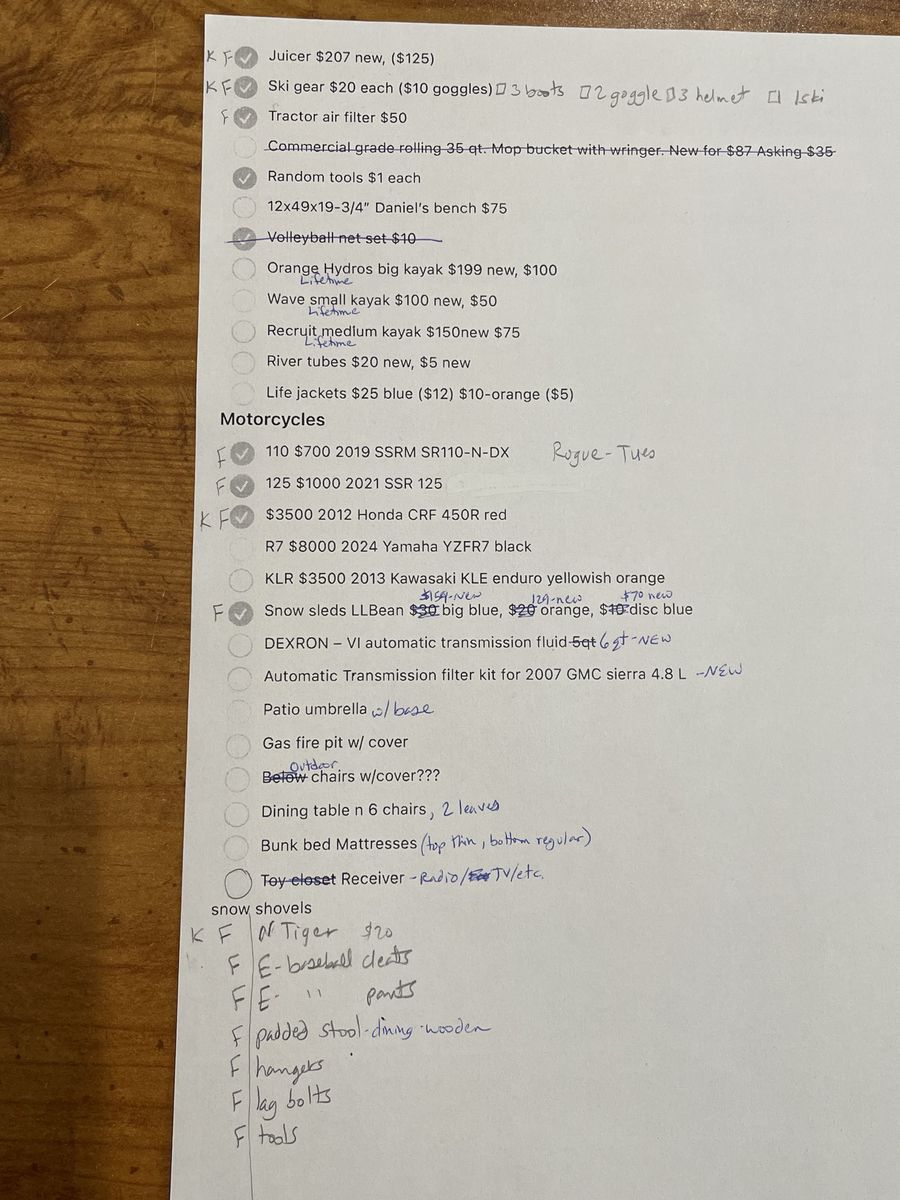 K F Juicer $207 new, ($125)
K F Ski gear $20 each ($10 goggles) □ 3 boots □ 2 goggle □ 3 helmet □ 1 ski
F Tractor air filter $50
Commercial grade rolling 35 qt. Mop bucket with wringer. New for $87 Asking $35
Random tools $1 each
12x49x19-3/4" Daniel's bench $75
Volleyball net set $10
Orange Hydros big kayak $199 new, $100
Lifetime
Wave small kayak $100 new, $50
Lifetime
Recruit medIum kayak $150new $75
Lifetime
River tubes $20 new, $5 new
Life jackets $25 blue ($12) $10-orange ($5)
Motorcycles
F 110 $700 2019 SSRM SR110-N-DX Rogue - Tues
F 125 $1000 2021 SSR 125
K F $3500 2012 Honda CRF 450R red
R7 $8000 2024 Yamaha YZFR7 black
KLR $3500 2013 Kawasaki KLE enduro yellowish orange
$159-new 129-new $70 new
F Snow sleds LLBean $30 big blue, $20 orange, $10 disc blue
DEXRON – VI automatic transmission fluid 5qt 6qt -NEW
Automatic Transmission filter kit for 2007 GMC sierra 4.8 L -NEW
Patio umbrella w/ base
Gas fire pit w/ cover
Outdoor
Below chairs w/cover???
Dining table n 6 chairs, 2 leaves
Bunk bed Mattresses (top thin, bottom regular)
Toy closet Receiver - Radio/TV/etc.
snow shovels
K F Tiger $20
F E- baseball cleats
F E- " pants
F padded stool-dining-wooden
F hangers
F lag bolts
F tools